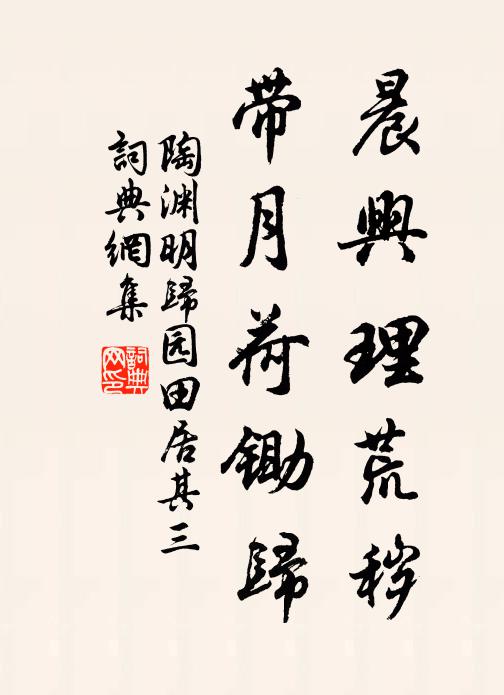 晨興理荒秽
带月荷锄歸
陶渊明歸园田居其三
詞典網集
詞典网印